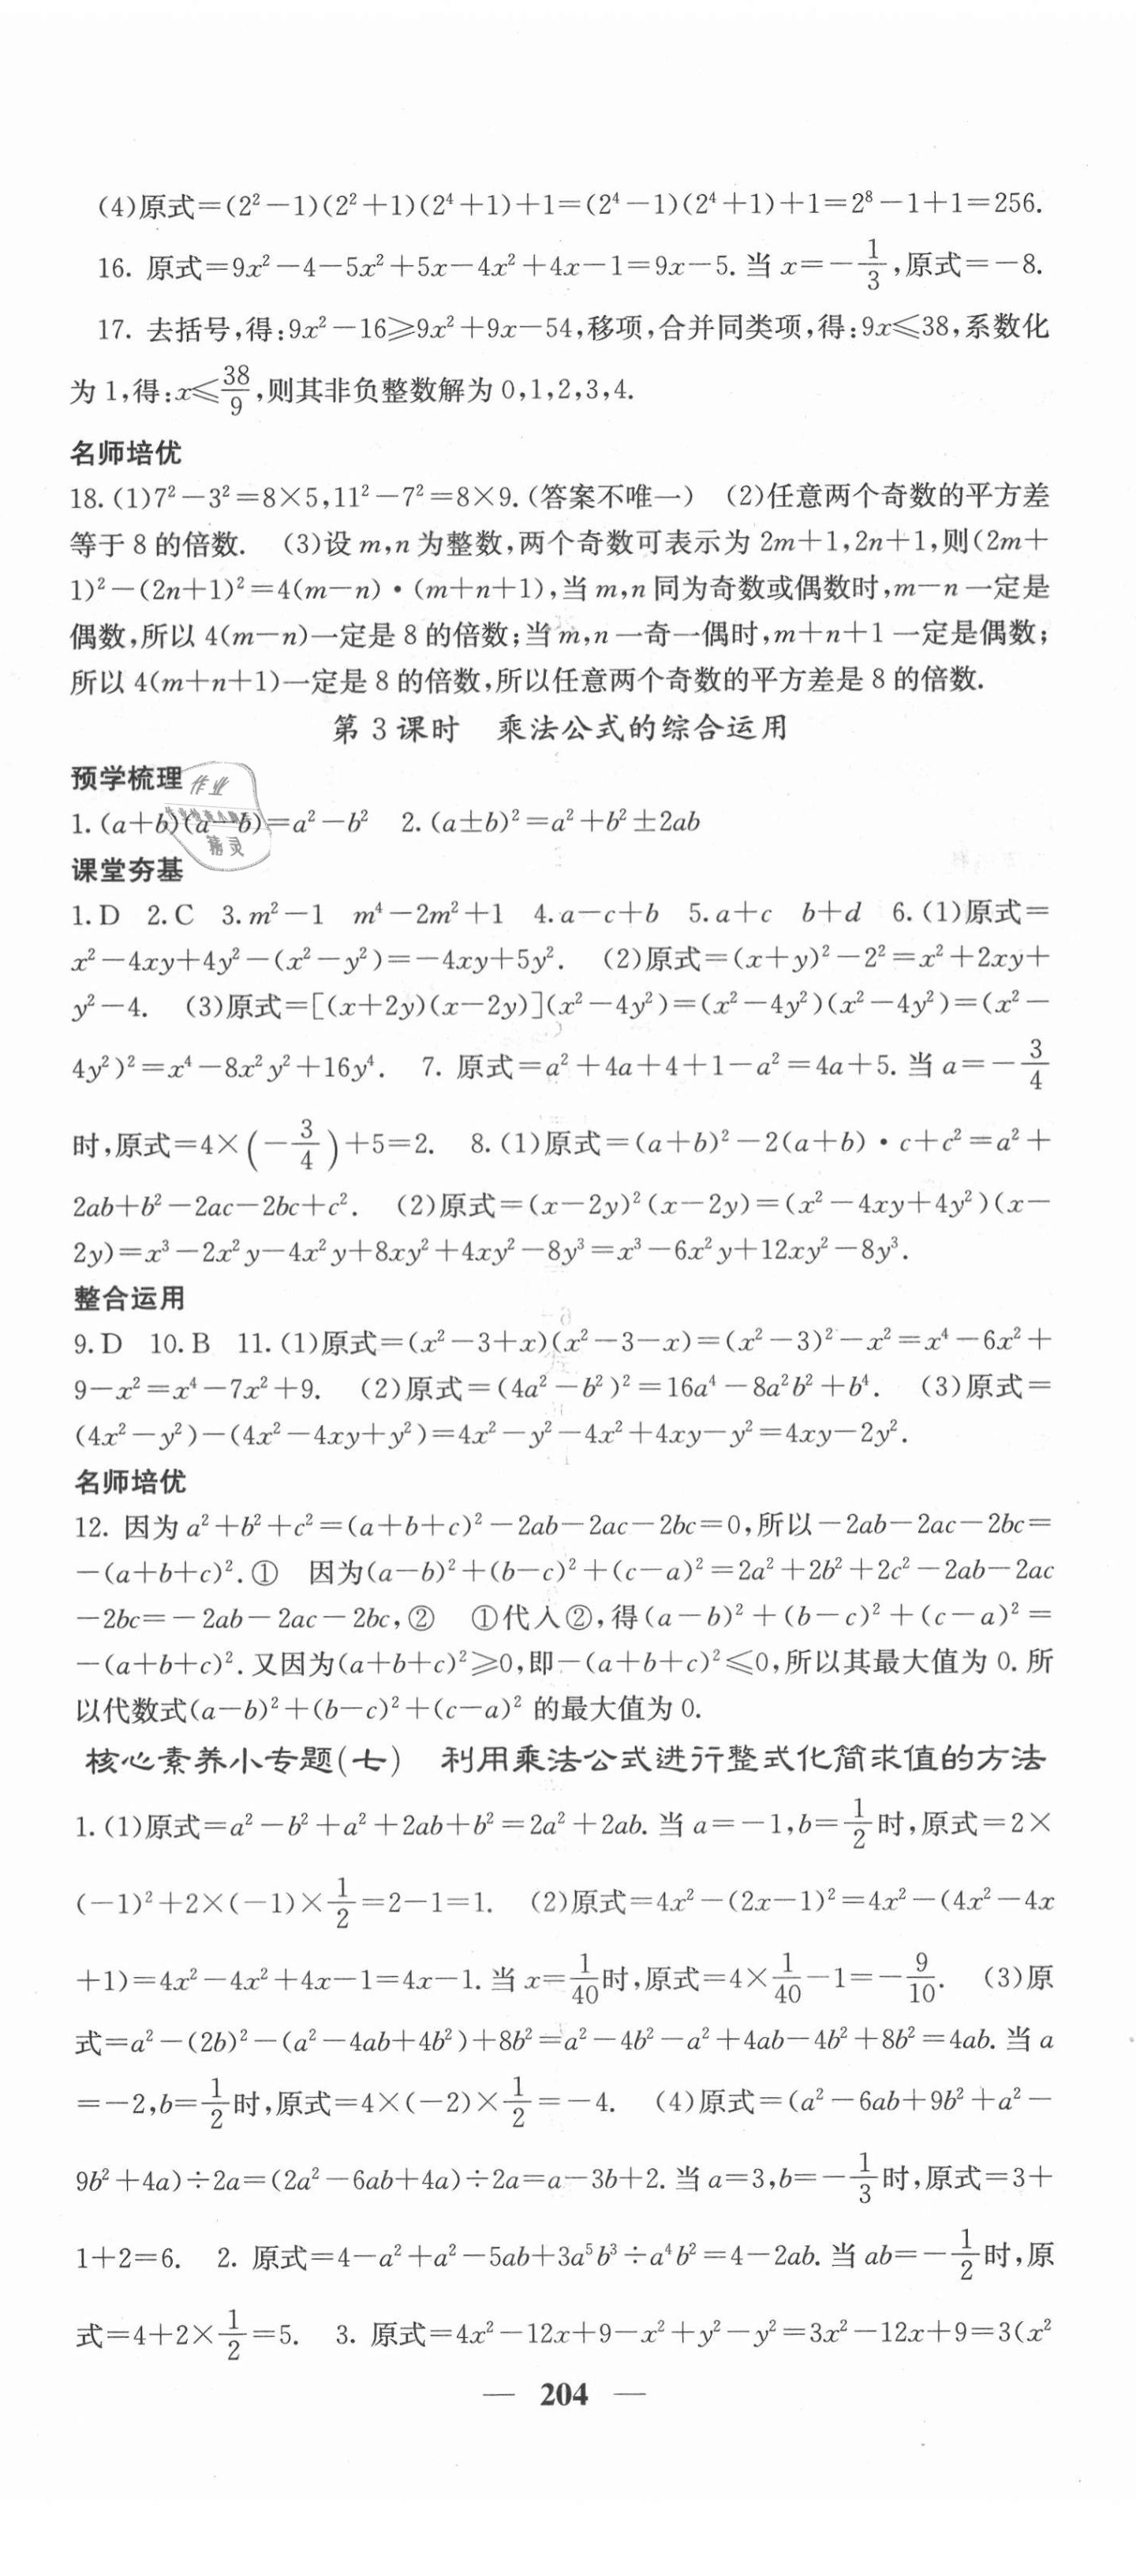 (4)原式=(2²-1)(2²+1)(2⁴+1)+1=(2⁴-1)(2⁴+1)+1=2⁸-1+1=256.
16. 原式=9x²-4-5x²+5x-4x²+4x-1=9x-5. 当 x=-1/3,原式=-8.
17. 去括号,得:9x²-16≥9x²+9x-54,移项,合并同类项,得:9x≤38,系数化
为 1,得:x≤38/9,则其非负整数解为 0,1,2,3,4.
名师培优
18. (1)7²-3²=8×5,11²-7²=8×9. (答案不唯一) (2)任意两个奇数的平方差
等于 8 的倍数. (3)设 m,n 为整数,两个奇数可表示为 2m+1,2n+1,则(2m+
1)²-(2n+1)²=4(m-n)·(m+n+1),当 m,n 同为奇数或偶数时,m-n 一定是
偶数,所以 4(m-n)一定是 8 的倍数;当 m,n 一奇一偶时,m+n+1 一定是偶数;
所以 4(m+n+1)一定是 8 的倍数,所以任意两个奇数的平方差是 8 的倍数.
第 3 课时 乘法公式的综合运用
预学梳理
作业
1. (a+b)(a-b)=a²-b² 2. (a±b)²=a²+b²±2ab
精灵
课堂夯基
1. D 2. C 3. m²-1 m⁴-2m²+1 4. a-c+b 5. a+c b+d 6. (1)原式=
x²-4xy+4y²-(x²-y²)=-4xy+5y². (2)原式=(x+y)²-2²=x²+2xy+
y²-4. (3)原式=[(x+2y)(x-2y)](x²-4y²)=(x²-4y²)(x²-4y²)=(x²-
4y²)²=x⁴-8x²y²+16y⁴. 7. 原式=a²+4a+4+1-a²=4a+5. 当 a=-3/4
时,原式=4×(-3/4)+5=2. 8. (1)原式=(a+b)²-2(a+b)·c+c²=a²+
2ab+b²-2ac-2bc+c². (2)原式=(x-2y)²(x-2y)=(x²-4xy+4y²)(x-
2y)=x³-2x²y-4x²y+8xy²+4xy²-8y³=x³-6x²y+12xy²-8y³.
整合运用
9. D 10. B 11. (1)原式=(x²-3+x)(x²-3-x)=(x²-3)²-x²=x⁴-6x²+
9-x²=x⁴-7x²+9. (2)原式=(4a²-b²)²=16a⁴-8a²b²+b⁴. (3)原式=
(4x²-y²)-(4x²-4xy+y²)=4x²-y²-4x²+4xy-y²=4xy-2y².
名师培优
12. 因为 a²+b²+c²=(a+b+c)²-2ab-2ac-2bc=0,所以-2ab-2ac-2bc=
-(a+b+c)². ① 因为(a-b)²+(b-c)²+(c-a)²=2a²+2b²+2c²-2ab-2ac
-2bc=-2ab-2ac-2bc,② ①代入②,得(a-b)²+(b-c)²+(c-a)²=
-(a+b+c)². 又因为(a+b+c)²≥0,即-(a+b+c)²≤0,所以其最大值为 0. 所
以代数式(a-b)²+(b-c)²+(c-a)² 的最大值为 0.
核心素养小专题(七) 利用乘法公式进行整式化简求值的方法
1. (1)原式=a²-b²+a²+2ab+b²=2a²+2ab. 当 a=-1,b=1/2时,原式=2×
(-1)²+2×(-1)×1/2=2-1=1. (2)原式=4x²-(2x-1)²=4x²-(4x²-4x
+1)=4x²-4x²+4x-1=4x-1. 当 x=1/40时,原式=4×1/40-1=-9/10. (3)原
式=a²-(2b)²-(a²-4ab+4b²)+8b²=a²-4b²-a²+4ab-4b²+8b²=4ab. 当 a
=-2,b=1/2时,原式=4×(-2)×1/2=-4. (4)原式=(a²-6ab+9b²+a²-
9b²+4a)÷2a=(2a²-6ab+4a)÷2a=a-3b+2. 当 a=3,b=-1/3时,原式=3+
1+2=6. 2. 原式=4-a²+a²-5ab+3a⁵b³÷a⁴b²=4-2ab. 当 ab=-1/2时,原
式=4+2×1/2=5. 3. 原式=4x²-12x+9-x²+y²-y²=3x²-12x+9=3(x²
— 204 —